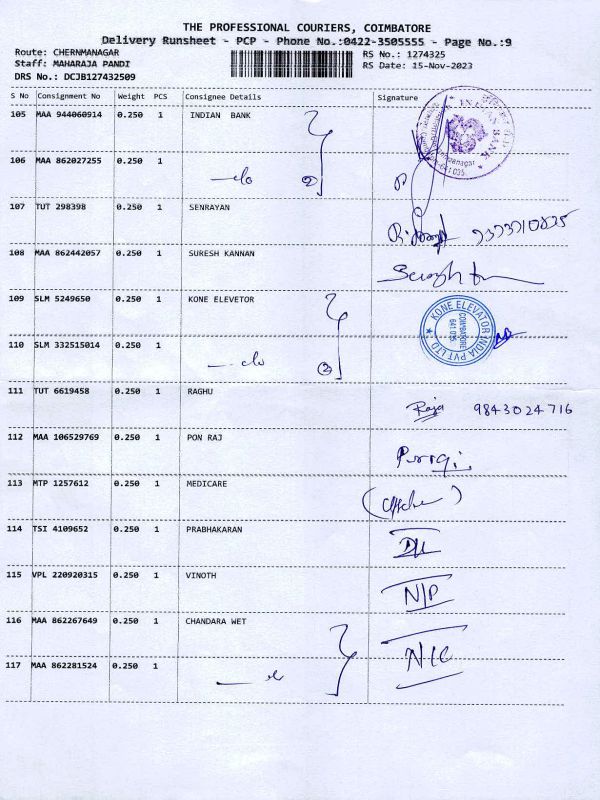 THE PROFESSIONAL COURIERS, COIMBATORE
Delivery Runsheet - PCP - Phone No.:0422-3505555 - Page No.:9
Route: CHERNMANAGAR RS No.: 1274325
Staff: MAHARAJA PANDI RS Date: 15-Nov-2023
DRS No.: DCJB127432509
S No Consignment No Weight PCS Consignee Details Signature
105 MAA 944060914 0.250 1 INDIAN BANK
INDIAN BANK
641 035
106 MAA 862027255 0.250 1
2
107 TUT 298398 0.250 1 SENRAYAN
108 MAA 862442057 0.250 1 SURESH KANNAN
109 SLM 5249650 0.250 1 KONE ELEVETOR
KONE ELEVATOR INDIA PVT LTD
COIMBATORE
641 035
110 SLM 332515014 0.250 1
2
111 TUT 6619458 0.250 1 RAGHU
Raja 9843024716
112 MAA 106529769 0.250 1 PON RAJ
113 MTP 1257612 0.250 1 MEDICARE
114 TSI 4109652 0.250 1 PRABHAKARAN
115 VPL 220920315 0.250 1 VINOTH
N/P
116 MAA 862267649 0.250 1 CHANDARA WET
N/C
117 MAA 862281524 0.250 1